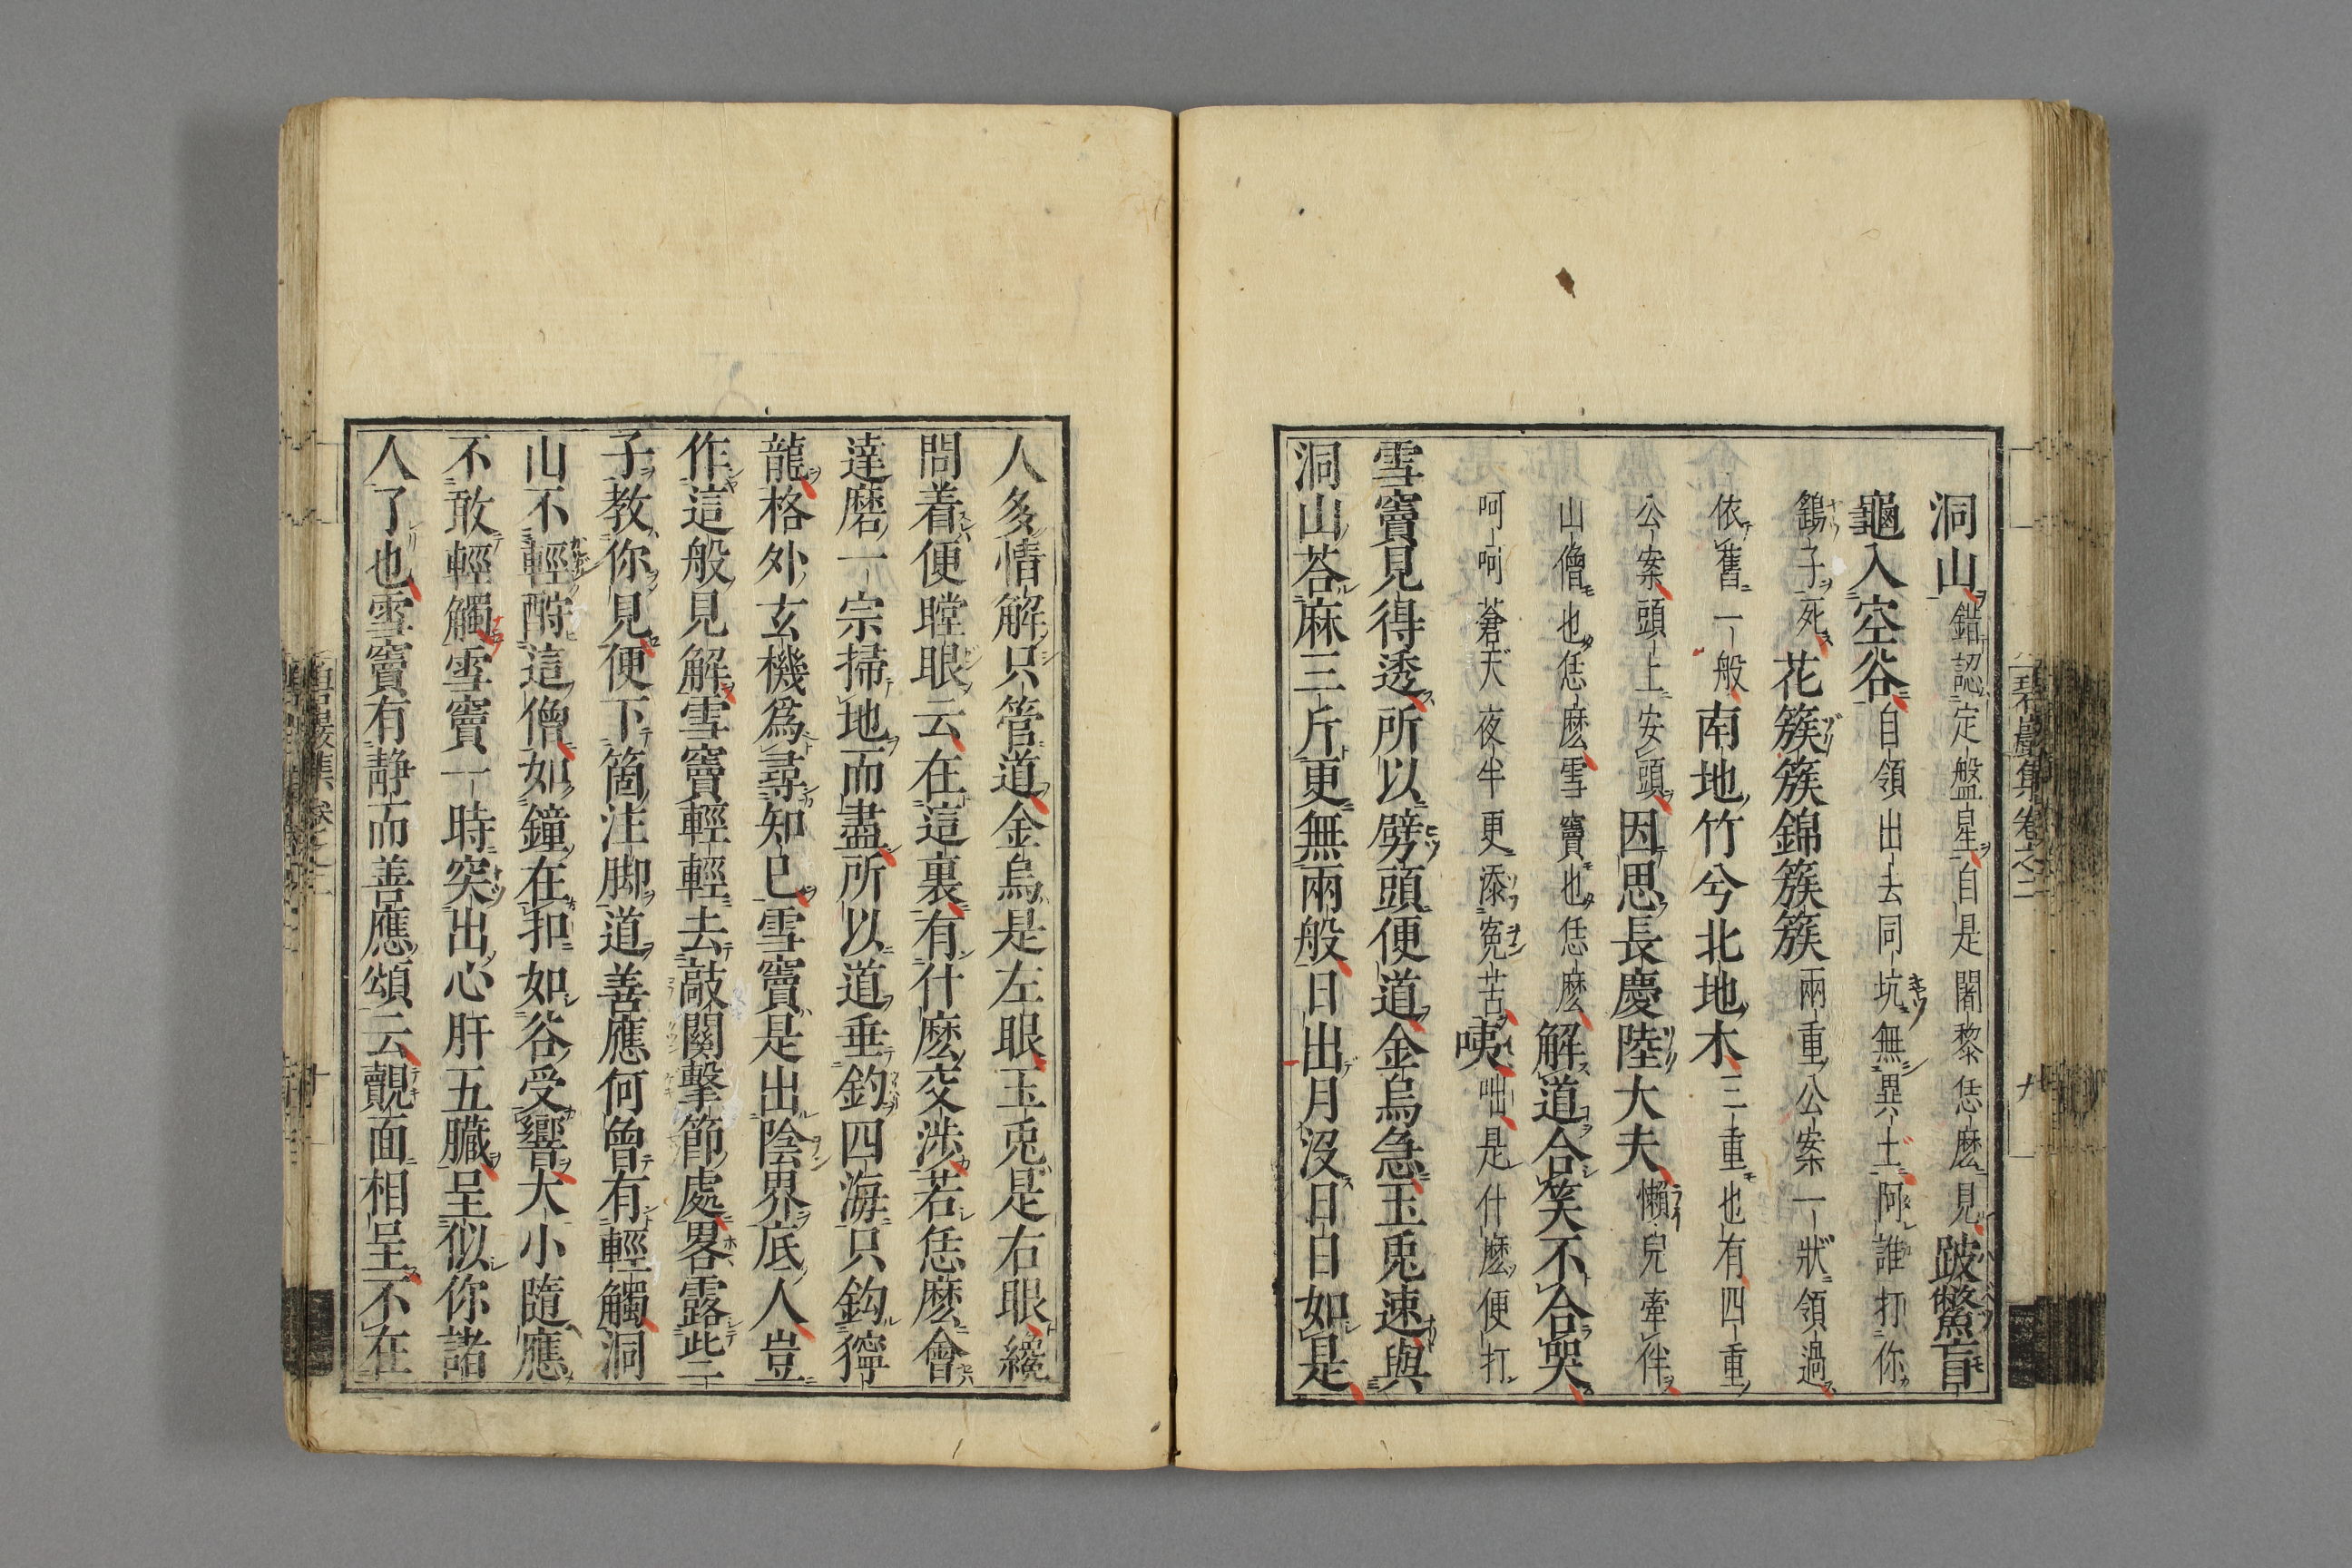 洞山錯認定盤星自是闍黎恁麽見跛鱉盲
龜入空谷自領出去同坑無異土阿誰打你
鷂子死花簇簇錦簇簇兩重公案一狀領過
依舊一般南地竹兮北地木三重也有四重
公案頭上安頭因思長慶陸大夫懶兒牽伴
山僧也恁麽雪竇也恁麽解道合笑不合哭
呵呵蒼天夜半更添寃苦咦咄是什麽便打
雪竇見得透所以劈頭便道金烏急玉兎速與
洞山荅麻三斤更無兩般日出月沒日日如是
人多情解只管道金烏是左眼玉兎是右眼纔
問着便瞠眼云在這裏有什麽交渉若恁麽會
達磨一宗掃地而盡所以道垂釣四海只釣獰
龍格外玄機爲尋知已雪竇是出陰界底人豈
作這般見解雪竇輕輕去敲關擊節處畧露些二
子教你見便下箇注脚道善應何曾有輕觸洞
山不輕酧這僧如鐘在扣如谷受響大小隨應
不敢輕觸雪竇一時突出心肝五臟呈似你諸
人了也雪竇有靜而善應頌云覿面相呈不在
碧巖集卷之二